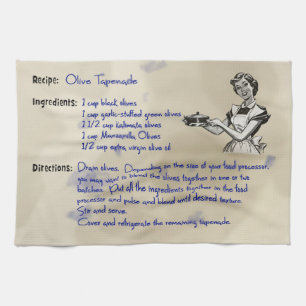 Recipe: Olive Tapenade
Ingredients: 1 cup black olives
1 cup garlic-stuffed green olives
1 1/2 cup kalamata olives
1 cup Manzanilla Olives
1/2 cup extra virgin olive oil
Directions: Drain olives. Depending on the size of your food processor,
you may want to blend the olives together in one or two
batches. Put all the ingredients together in the food
processor and pulse and blend until desired texture.
Stir and serve.
Cover and refrigerate the remaining tapenade.